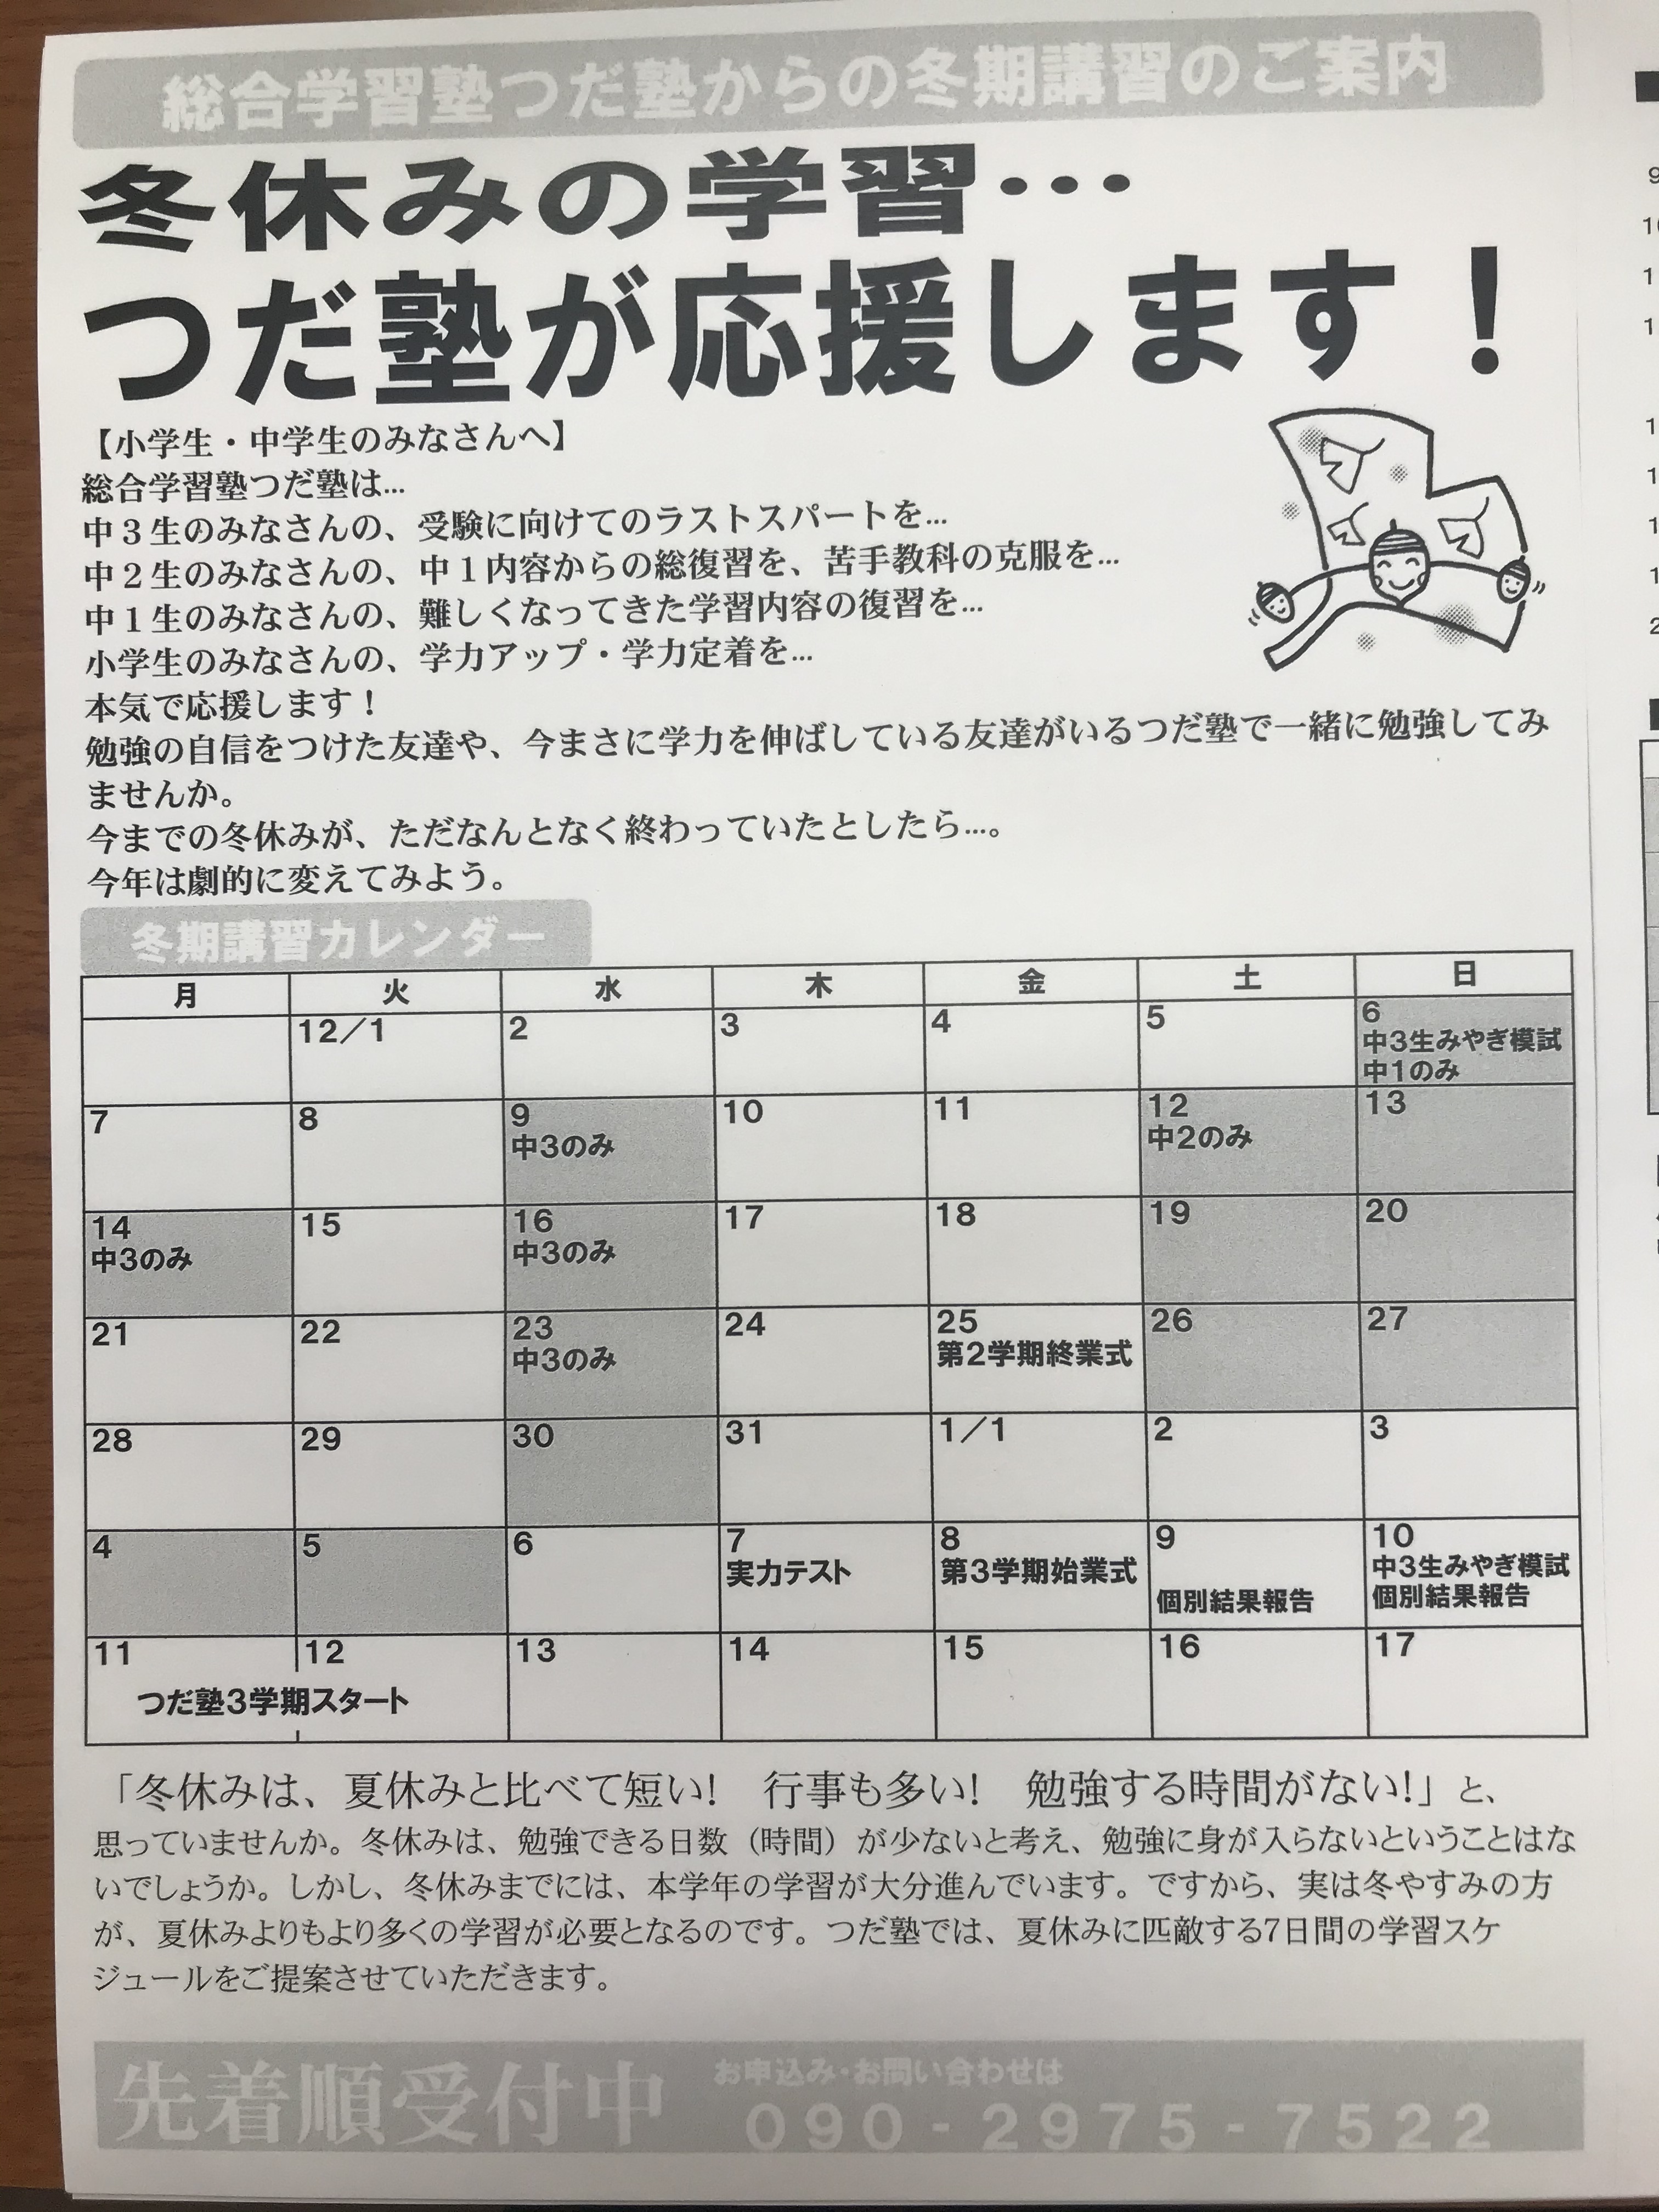 総合学習塾つだ塾からの冬期講習のご案内
冬休みの学習…
つだ塾が応援します！
【小学生・中学生のみなさんへ】
総合学習塾つだ塾は…
中３生のみなさんの、受験に向けてのラストスパートを…
中２生のみなさんの、中１内容からの総復習を、苦手教科の克服を…
中１生のみなさんの、難しくなってきた学習内容の復習を…
小学生のみなさんの、学力アップ・学力定着を…
本気で応援します！
勉強の自信をつけた友達や、今まさに学力を伸ばしている友達がいるつだ塾で一緒に勉強してみ
ませんか。
今までの冬休みが、ただなんとなく終わっていたとしたら…。
今年は劇的に変えてみよう。
冬期講習カレンダー
月 火 水 木 金 土 日
12／1 2 3 4 5 6
中3生みやぎ模試
中1のみ
7 8 9 10 11 12 13
中3のみ 中2のみ
14 15 16 17 18 19 20
中3のみ 中3のみ
21 22 23 24 25 26 27
中3のみ 第2学期終業式
28 29 30 31 1／1 2 3
4 5 6 7 8 9 10
実力テスト 第3学期始業式 中3生みやぎ模試
個別結果報告 個別結果報告
11 12 13 14 15 16 17
つだ塾3学期スタート
「冬休みは、夏休みと比べて短い！ 行事も多い！ 勉強する時間がない！」と、
思っていませんか。冬休みは、勉強できる日数（時間）が少ないと考え、勉強に身が入らないということはな
いでしょうか。しかし、冬休みまでには、本学年の学習が大分進んでいます。ですから、実は冬やすみの方
が、夏休みよりもより多くの学習が必要となるのです。つだ塾では、夏休みに匹敵する7日間の学習スケ
ジュールをご提案させていただきます。
先着順受付中
お申込み・お問い合わせは
090-2975-7522